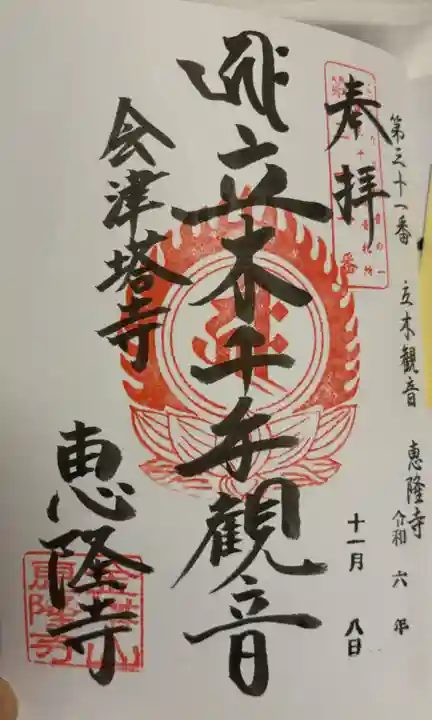 第三十一番 立木観音 恵隆寺 令和六年
十一月 八日
奉拝
立木千手観音
会津塔寺
恵隆寺